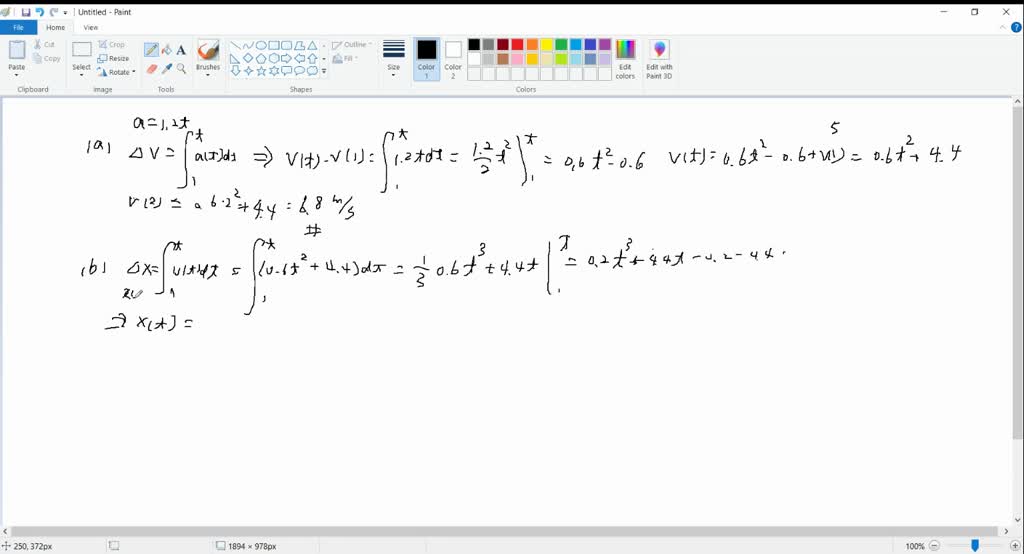 Untitled - Paint
File Home View
Paste
Cut
Copy
Clipboard
Select
Crop
Resize
Rotate
Image
Tools
Brushes
Outline
Fill
Shapes
Size
Color 1
Color 2
Colors
Edit colors
Edit with Paint 3D
a=1.2t
(a) ΔV = ∫₁ᵗ a(t)dt ⇒ V(t)-V(1) = ∫₁ᵗ 1.2tdt = 1.2/2 t² |₁ᵗ = 0.6t²-0.6 V(t)=0.6t²-0.6+V(1) = 0.6t²+4.4
5
V(2) = 0.6·2²+4.4 = 6.8 m/s
#
(b) Δx = ∫₁ᵗ v(t)dt = ∫₁ᵗ (0.6t²+4.4)dt = 1/3 0.6t³+4.4t |₁ᵗ = 0.2t³+4.4t-0.2-4.4
⇒ x(t) =
250, 372px
1894 × 978px
100%